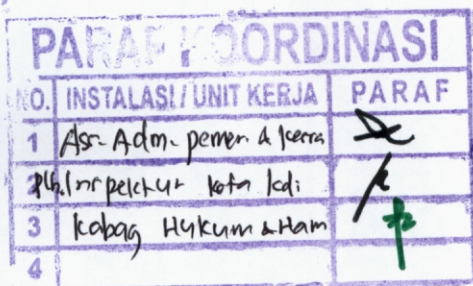 PARAF KOORDINASI
NO. INSTALASI / UNIT KERJA PARAF
1 Ass. Adm. pemer. & kesra
2 Plh. Inspektur kota kdi
3 kabag Hukum & Ham
4